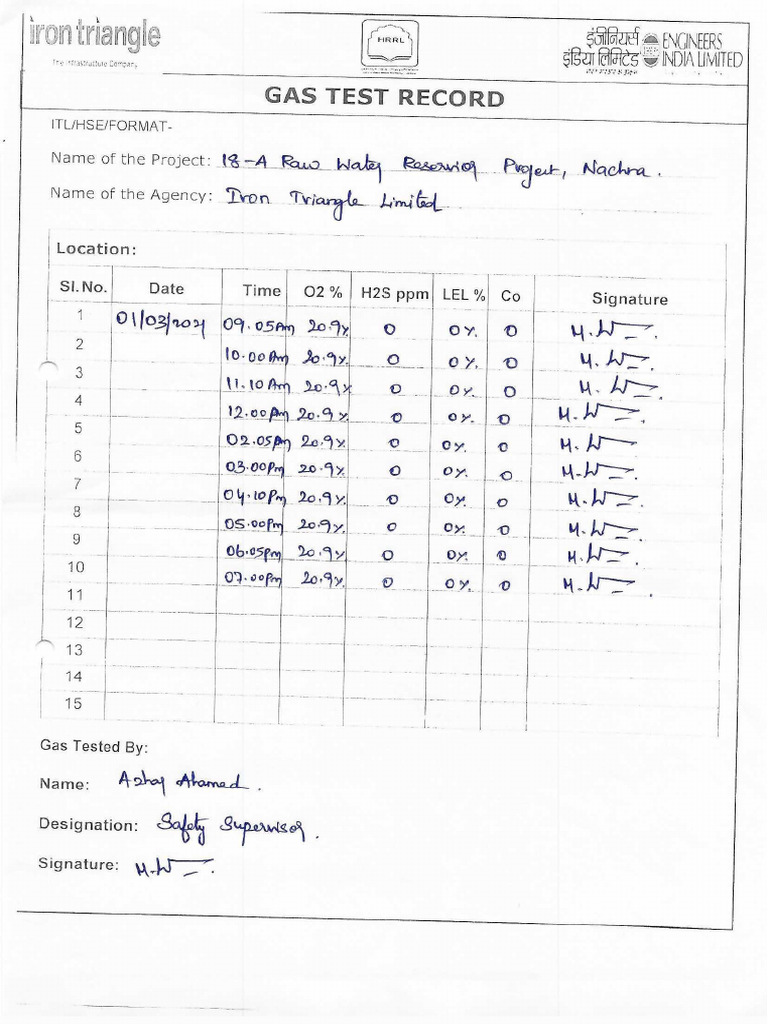 iron triangle
The Infrastructure Company
HRRL
इंजीनियर्स
इंडिया लिमिटेड
ENGINEERS
INDIA LIMITED
GAS TEST RECORD
ITL/HSE/FORMAT-
Name of the Project: 18-A Raw Water Reservior Project, Nachna.
Name of the Agency: Iron Triangle Limited
Location:
Sl.No. Date Time O2 % H2S ppm LEL % Co Signature
1 01/03/2021 09.05Am 20.9% 0 0% 0
2 10.00Am 20.9% 0 0% 0
3 11.10Am 20.9% 0 0% 0
4 12.00Pm 20.9% 0 0% 0
5 02.05Pm 20.9% 0 0% 0
6 03.00Pm 20.9% 0 0% 0
7 04.10Pm 20.9% 0 0% 0
8 05.00Pm 20.9% 0 0% 0
9 06.05pm 20.9% 0 0% 0
10 07.00Pm 20.9% 0 0% 0
11
12
13
14
15
Gas Tested By:
Name: Azhar Ahamed.
Designation: Safety Supervisor.
Signature: